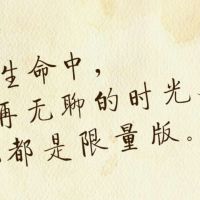 生命中，
再无聊的时光
都是限量版。